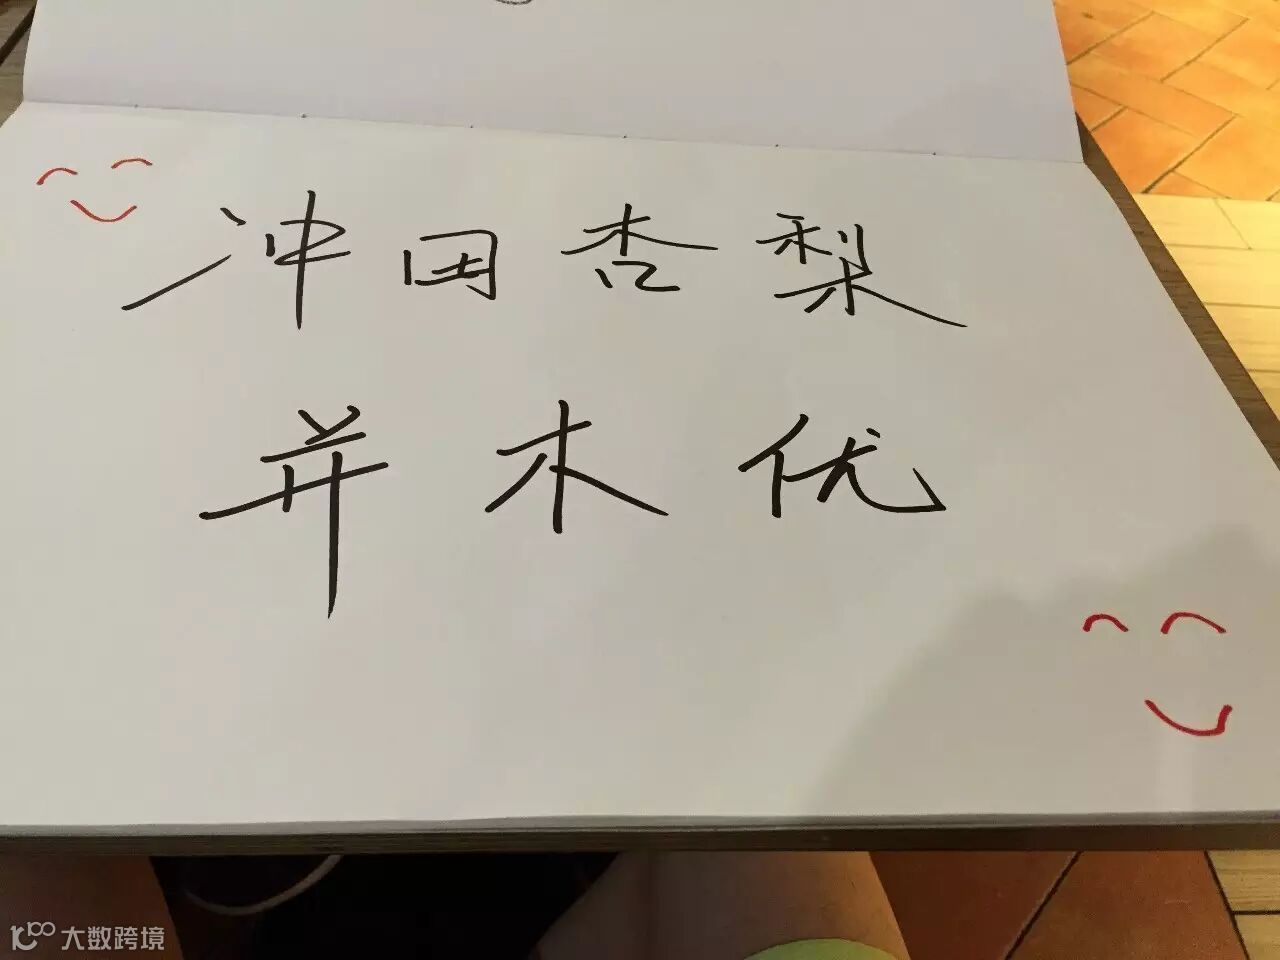 冲田杏梨
并木优
大数跨境